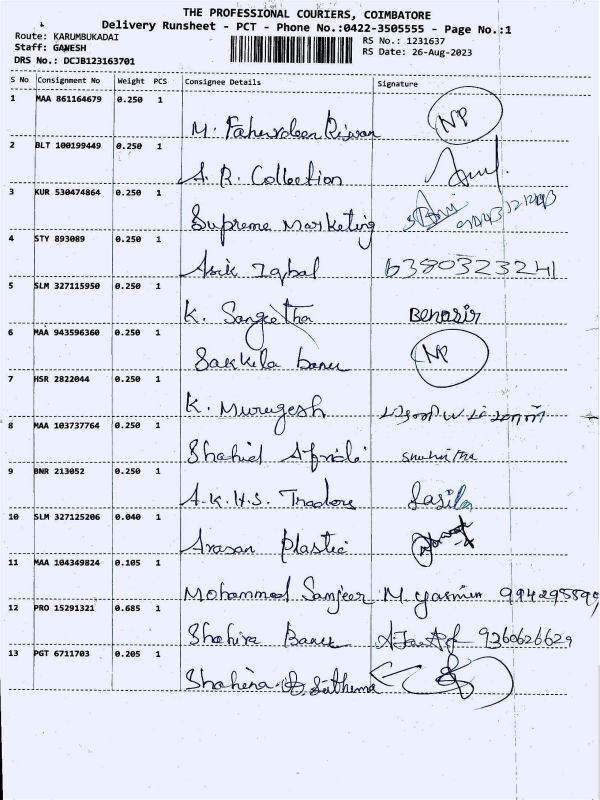 THE PROFESSIONAL COURIERS, COIMBATORE
Delivery Runsheet - PCT - Phone No.:0422-3505555 - Page No.:1
Route: KARUMBUKADAI
RS No.: 1231637
Staff: GANESH
RS Date: 26-Aug-2023
DRS No.: DCJB123163701
S No Consignment No Weight PCS Consignee Details Signature
1 MAA 861164679 0.250 1
M. Faherdeen Riswan NP
2 BLT 100199449 0.250 1
A. R. Collection
3 KUR 530474864 0.250 1
Supreme Marketing
4 STY 893089 0.250 1
Asik Iqbal 6380323241
5 SLM 327115950 0.250 1
K. Sangeetha Benasir
6 MAA 943596360 0.250 1
Sakkila banu NP
7 HSR 2822044 0.250 1
K. Murugesh
8 MAA 103737764 0.250 1
Shahid Afridi
9 BNR 213052 0.250 1
A.K.H.S. Traders
10 SLM 327125206 0.040 1
Arasan Plastic
11 MAA 104349824 0.105 1
Mohammed Sanjeer M. yasmin
12 PRO 15291321 0.685 1
Shahira Banu 9360626629
13 PGT 6711703 0.205 1
Shahena